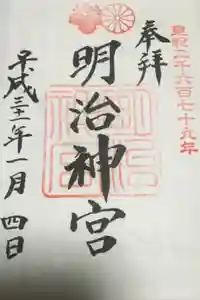 皇紀二千六百七十九年
奉拝
明治神宮
明治
神宮
平成三十一年一月四日